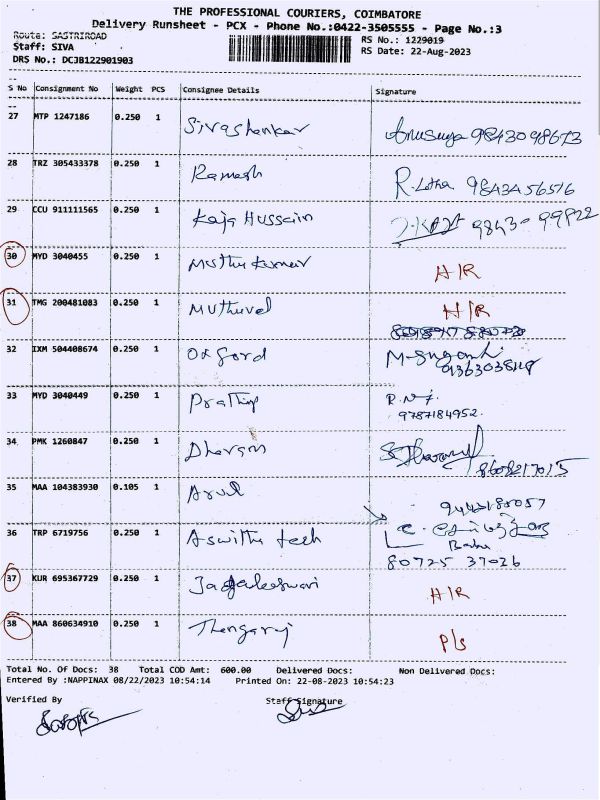 THE PROFESSIONAL COURIERS, COIMBATORE
Delivery Runsheet - PCX - Phone No.:0422-3505555 - Page No.:3
Route: SASTRIROAD
Staff: SIVA
DRS No.: DCJB122901903
RS No.: 1229019
RS Date: 22-Aug-2023
S No Consignment No Weight PCS Consignee Details Signature
27 MTP 1247186 0.250 1 Sivashankar Anusuya 9843098673
28 TRZ 305433378 0.250 1 Ramesh R. Latha 9843456516
29 CCU 911111565 0.250 1 Kaja Hussain 9843-99822
30 MYD 3040455 0.250 1 Muthu Kumar H/R
31 TMG 200481083 0.250 1 Muthuvel H/R
32 IXM 504408674 0.250 1 Oxford M-Suganthi
33 MYD 3040449 0.250 1 Prathip
9787184952.
34 PMK 1260847 0.250 1
8608217015
35 MAA 104383930 0.105 1 Arul
36 TRP 6719756 0.250 1 Aswitha tech Babu
80725 37026
37 KUR 695367729 0.250 1 H/R
38 MAA 860634910 0.250 1 Thengaraj P/s
Total No. Of Docs: 38 Total COD Amt: 600.00 Delivered Docs: Non Delivered Docs:
Entered By :NAPPINAX 08/22/2023 10:54:14 Printed On: 22-08-2023 10:54:23
Verified By Staff Signature